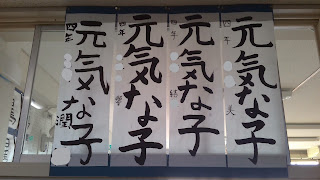 元気な子
四年
美
元気な子
四年
結
元気な子
四年
元気な子
四年
潤